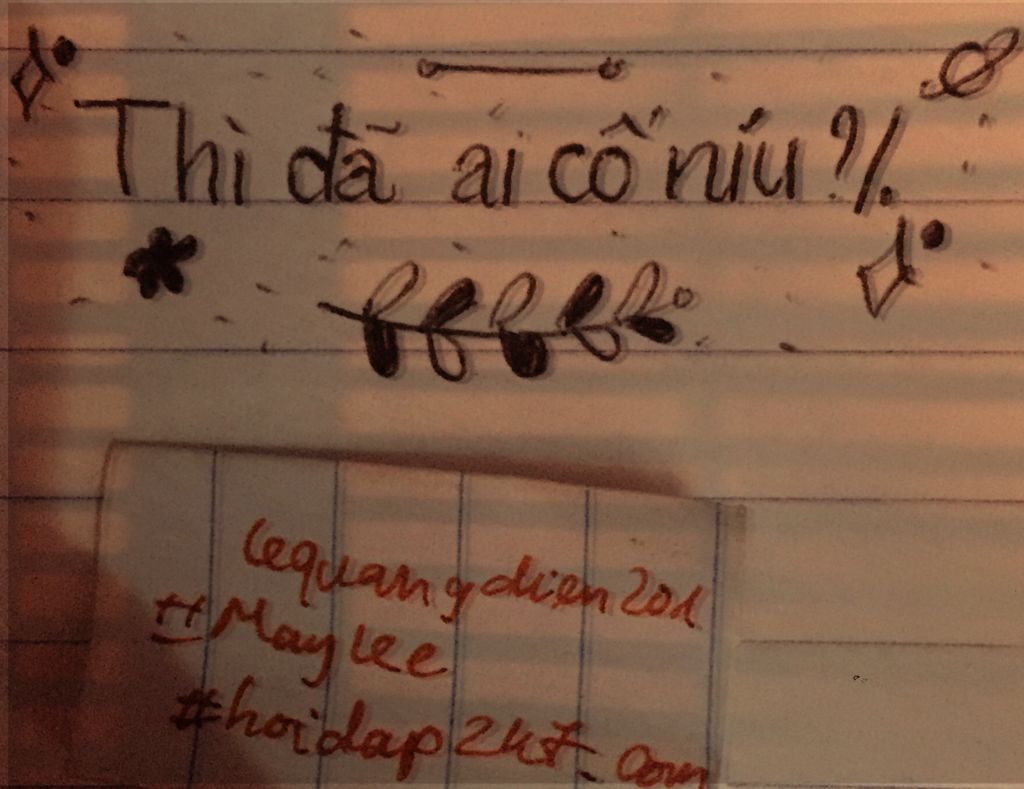 Thì đã ai cố níu?/.
lequangdien201
#MayLee
#hoidap2k7.com